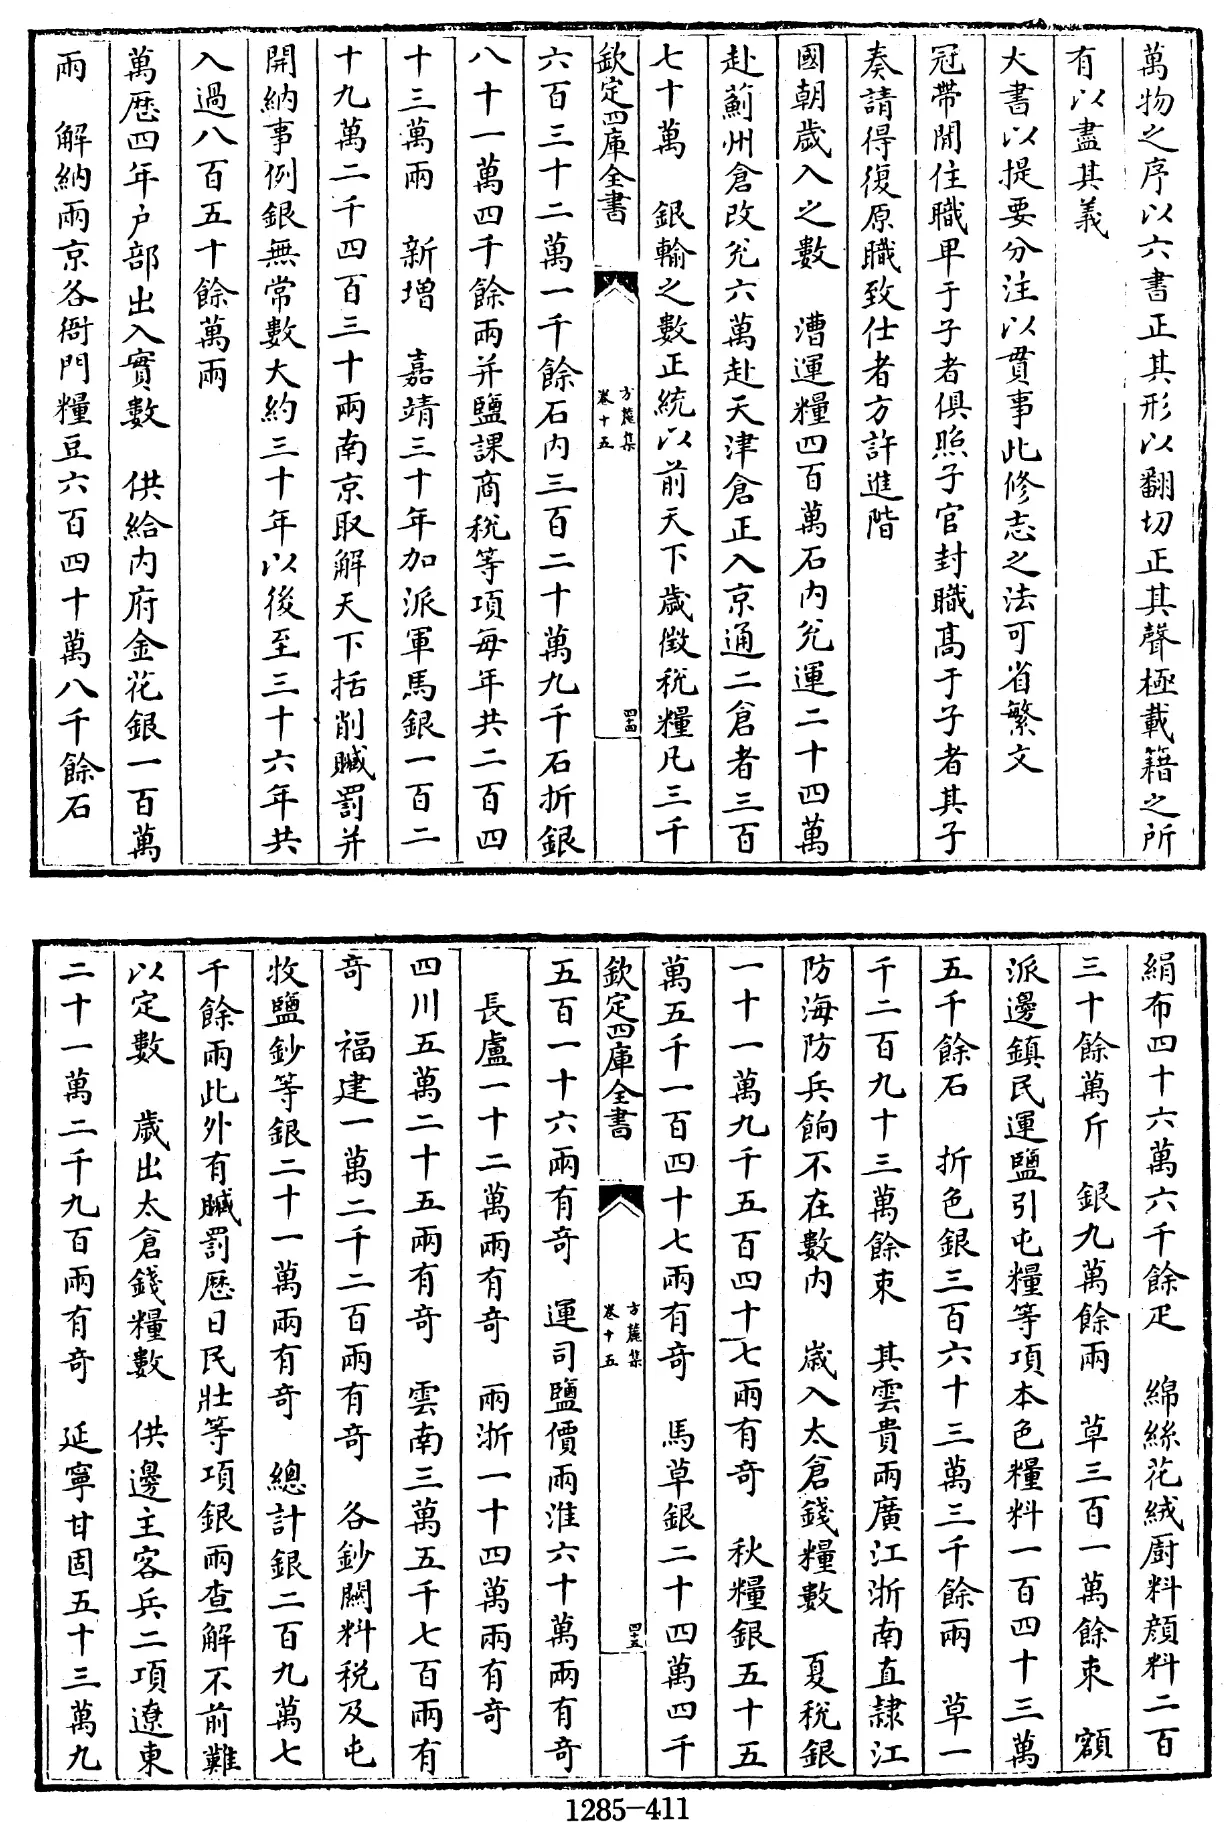 萬物之序以六書正其形以翻切正其聲極載籍之所
有以盡其義
大書以提要分注以貫事此修志之法可省繁文
冠帶閒住職卑于子者俱照子官封職髙于子者其子
奏請得復原職致仕者方許進階
國朝歲入之數　漕運糧四百萬石内兊運二十四萬
赴薊州倉改兊六萬赴天津倉正入京通二倉者三百
七十萬　銀輸之數正統以前天下歲徵稅糧凡三千
欽定四庫全書　方麓集　卷十五　四十四
六百三十二萬一千餘石内三百二十萬九千石折銀
八十一萬四千餘兩并鹽課商稅等項每年共二百四
十三萬兩　新增　嘉靖三十年加派軍馬銀一百二
十九萬二千四百三十兩南京取解天下括削贓罰并
開納事例銀無常數大約三十年以後至三十六年共
入過八百五十餘萬兩
萬厯四年户部出入實數　供給内府金花銀一百萬
兩　解納兩京各衙門糧豆六百四十萬八千餘石
絹布四十六萬六千餘疋　綿絲花絨厨料顔料二百
三十餘萬斤　銀九萬餘兩　草三百一萬餘束　額
派邊鎮民運鹽引屯糧等項本色糧料一百四十三萬
五千餘石　折色銀三百六十三萬三千餘兩　草一
千二百九十三萬餘束　其雲貴兩廣江浙南直隷江
防海防兵餉不在數内　歲入太倉錢糧數　夏稅銀
一十一萬九千五百四十七兩有奇　秋糧銀五十五
萬五千一百四十七兩有奇　馬草銀二十四萬四千
欽定四庫全書　方麓集　卷十五　四十五
五百一十六兩有奇　運司鹽價兩淮六十萬兩有奇
長盧一十二萬兩有奇　兩浙一十四萬兩有奇
四川五萬二十五兩有奇　雲南三萬五千七百兩有
奇　福建一萬二千二百兩有奇　各鈔關料税及屯
牧鹽鈔等銀二十一萬兩有奇　總計銀二百九萬七
千餘兩此外有贓罰厯日民壯等項銀兩查解不前難
以定數　歲出太倉錢糧數　供邊主客兵二項遼東
二十一萬二千九百兩有奇　延寧甘固五十三萬九
1285-411